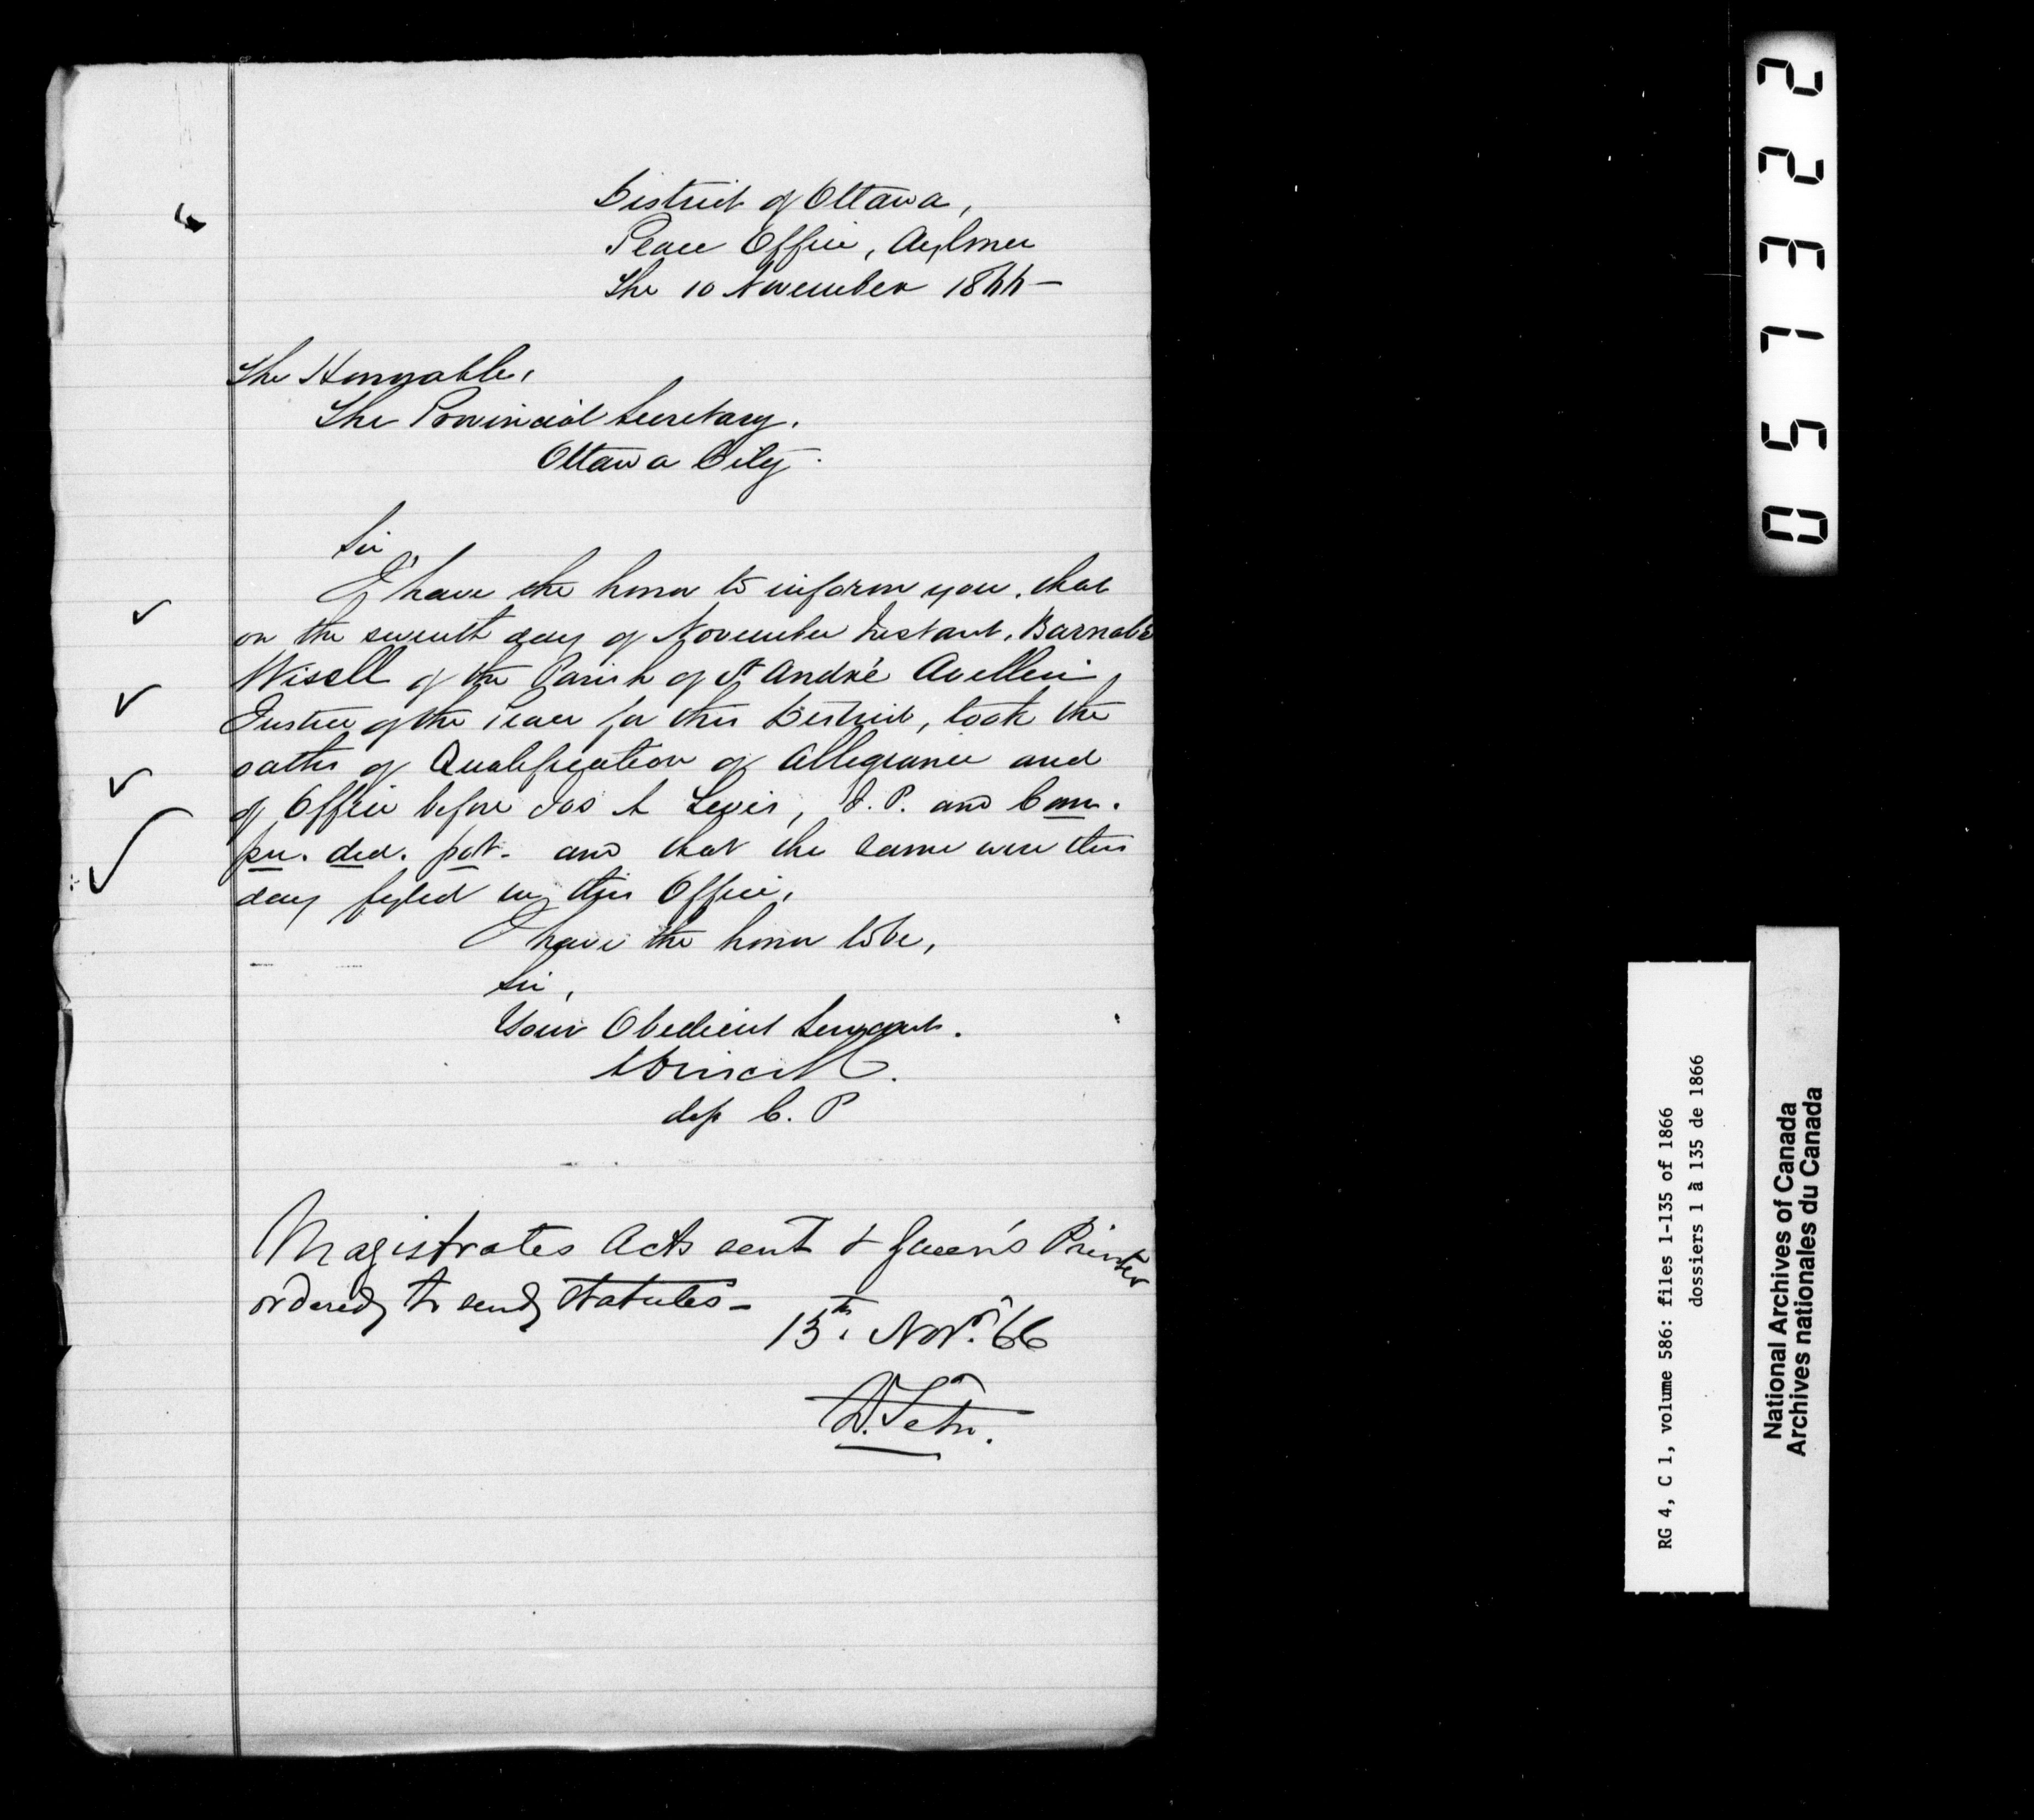 District of Ottawa,
Peace Office, Aylmer
The 10 November 1866 —
The Honorable,
The Provincial Secretary.
Ottawa City.
Sir,
I have the honor to inform you, that
on the seventh day of November Instant, Barnabé
Wisell of the Parish of St André Avellin,
Justice of the Peace for this District, took the
oaths of Qualification of Allegiance and
of Office before Jos A Levis, J. P. and Com.
per. ded. pot. and that the same were this
day fyled in this Office,
I have the honor to be,
Sir,
Your Obedient Servant.
dep C. P
Magistrates Acts sent & Queen's Printer
ordered to send statutes —
15th. Novr. '66
22
3
1
5
0
RG 4, C 1, volume 586: files 1-135 of 1866
dossiers 1 à 135 de 1866
National Archives of Canada
Archives nationales du Canada